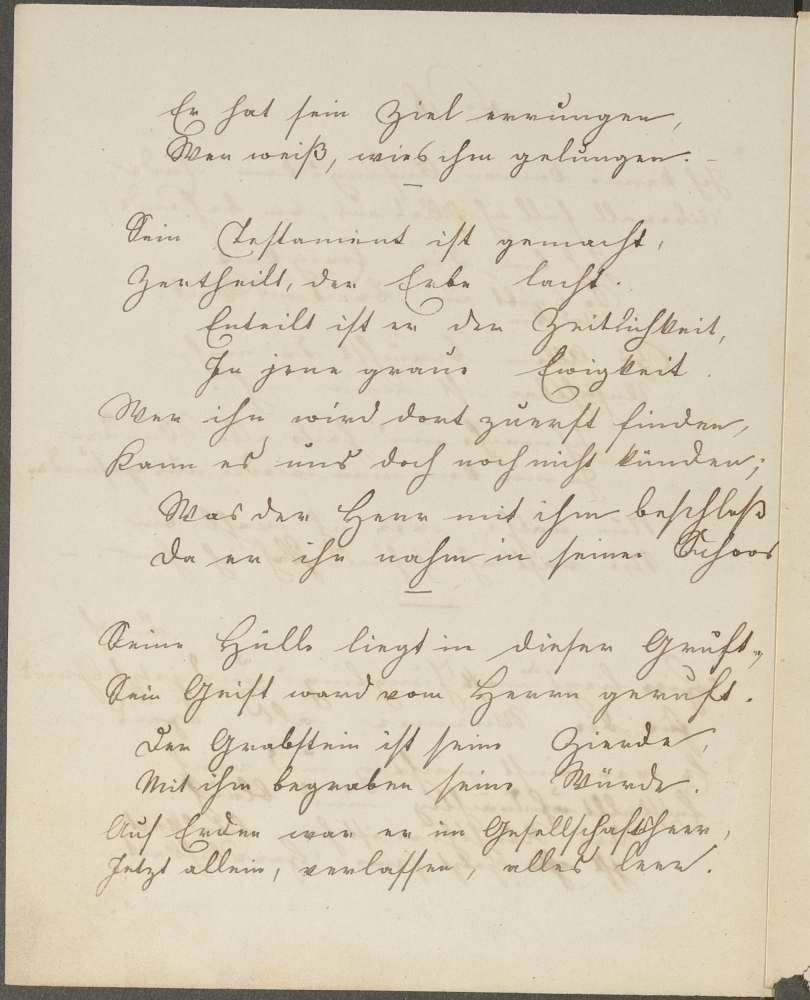 Er hat sein Ziel errungen,
Wer weiß, wies ihm gelungen. –
Sein Testament ist gemacht,
Zertheilt, der Erbe lacht.
Enteilt ist er der Zeitlichkeit,
In jene graue Ewigkeit.
Wer ihn wird dort zuerst finden,
Kann es uns doch noch nicht künden;
Was der Herr mit ihm beschloß
Da er ihn nahm in seinen Schoos
Seine Hülle liegt in dieser Gruft,
Sein Geist ward vom Herrn geruft.
Der Grabstein ist seine Zierde,
Mit ihm begraben seine Würde.
Auf Erden war er im Gesellschaftsheer,
Jetzt allein, verlassen, alles leer.